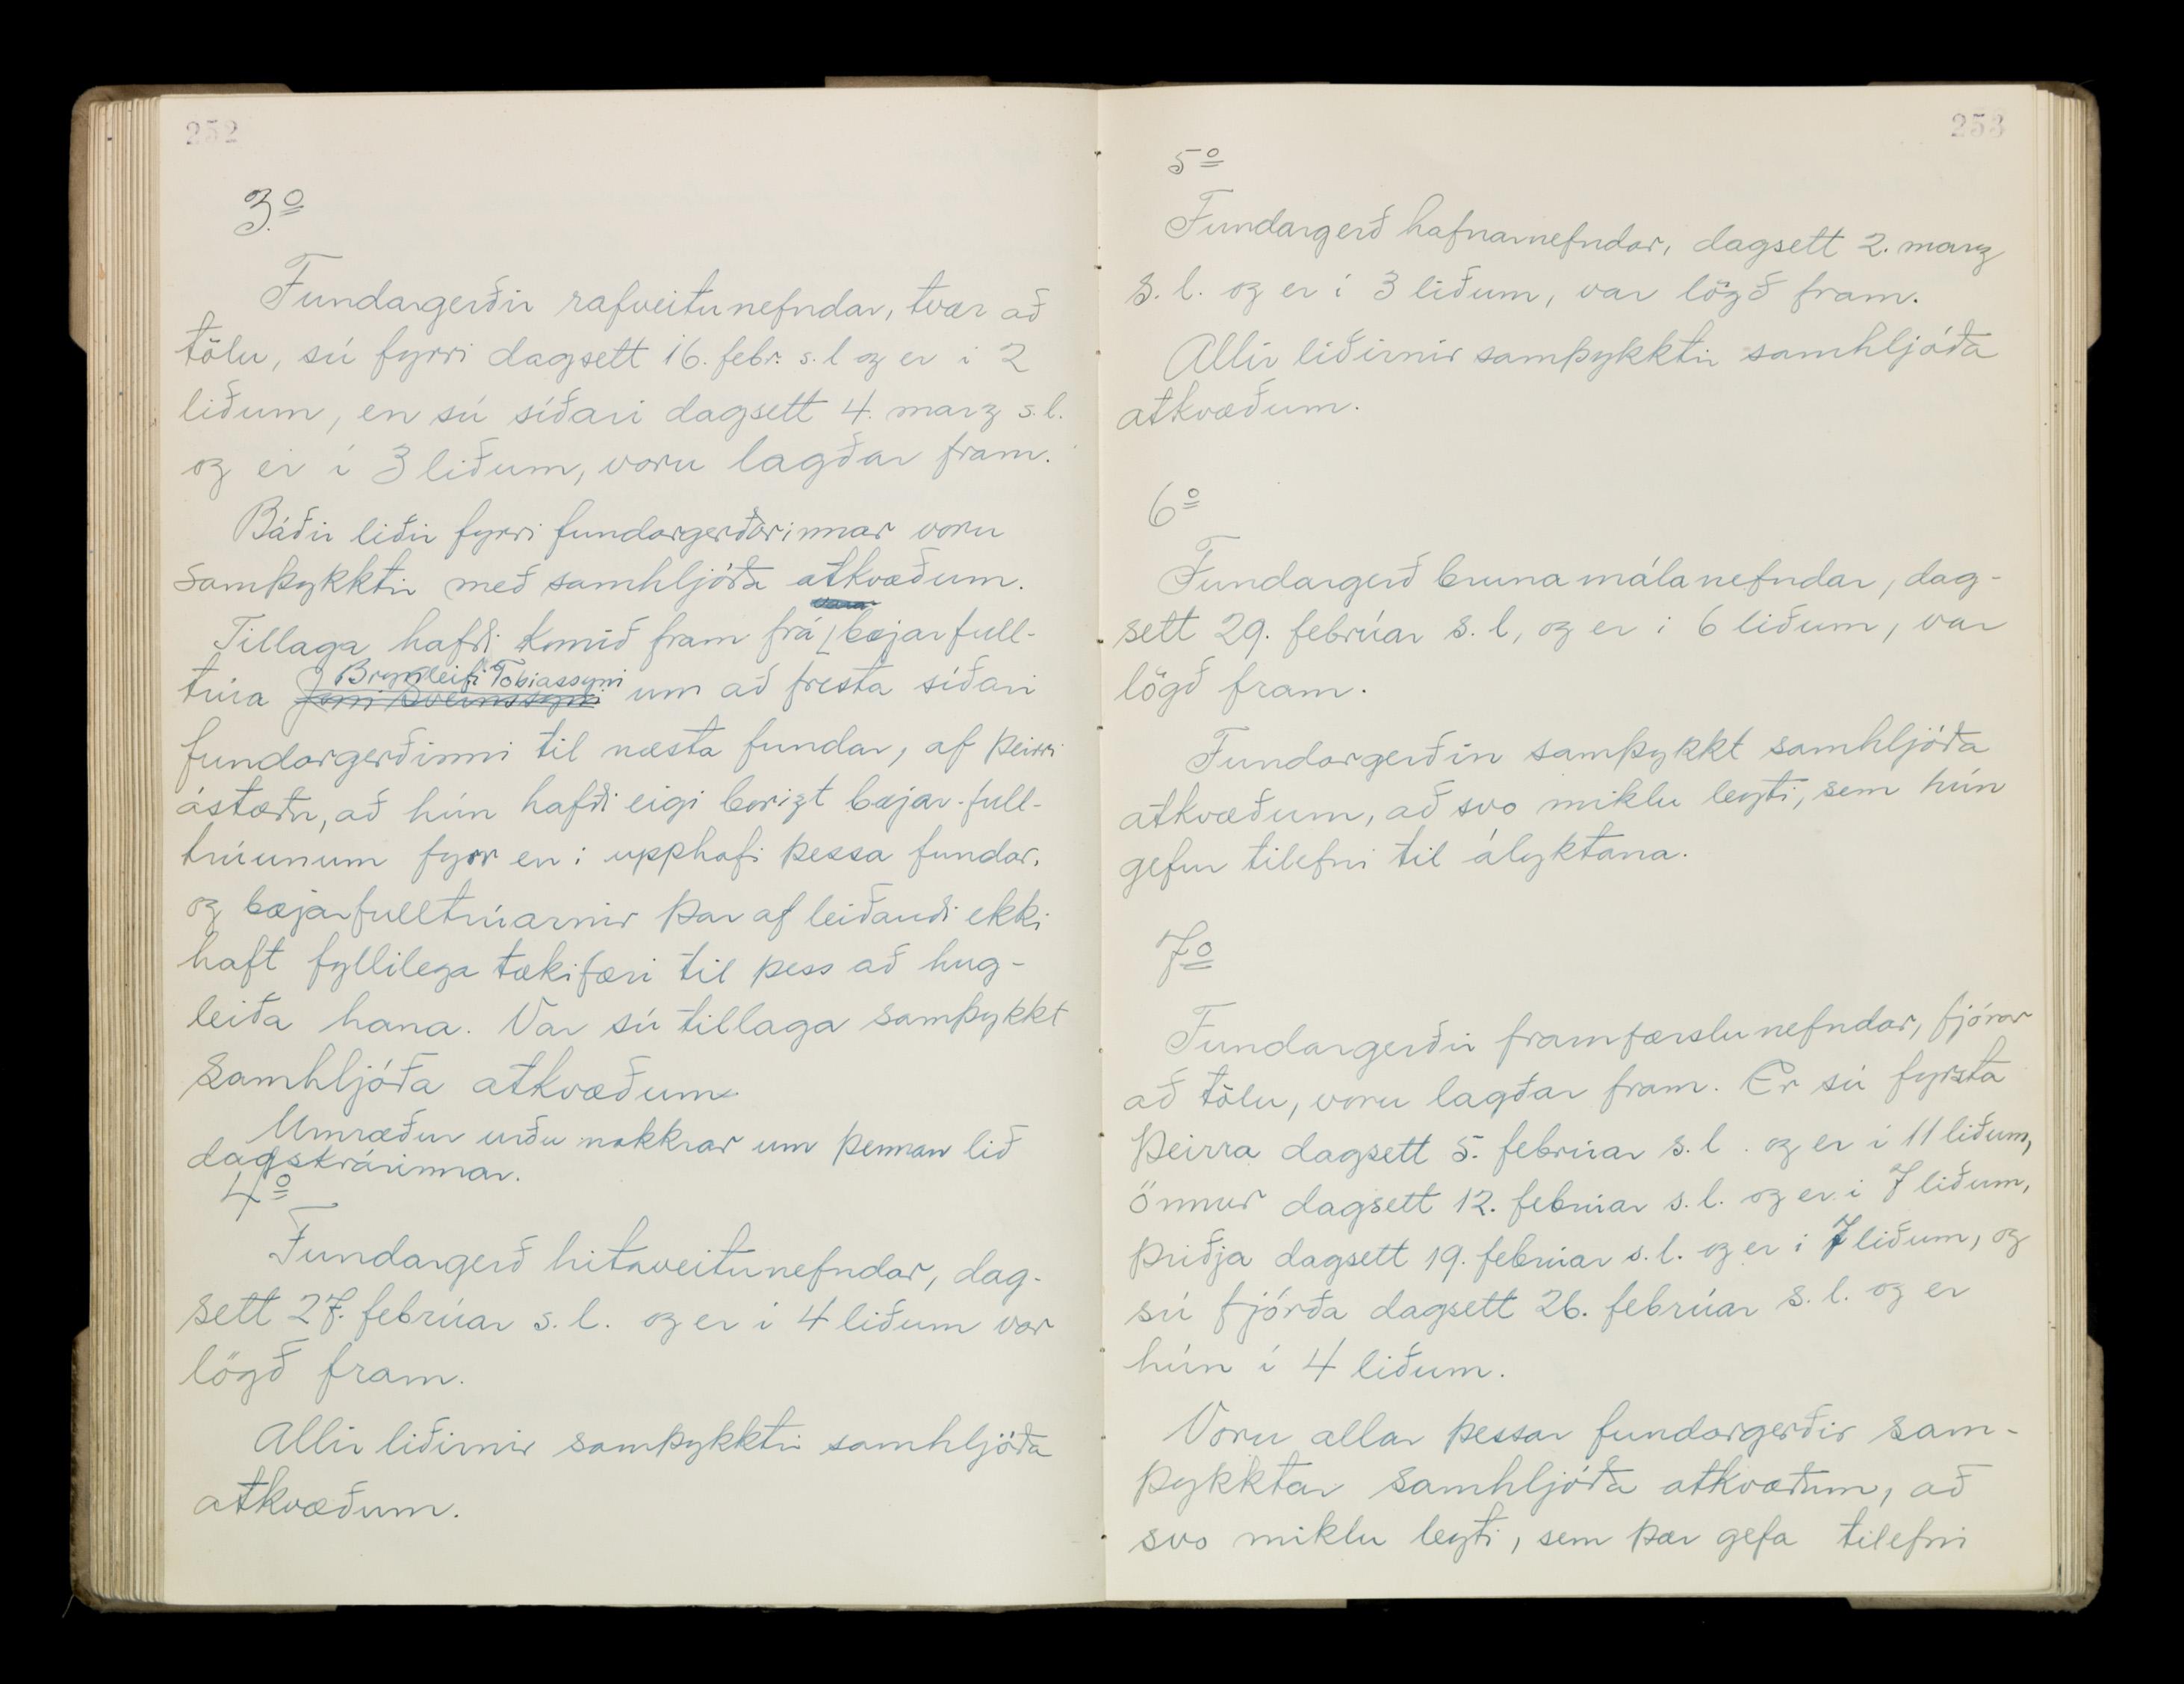 252
3.º
Fundargerðir rafveitunefndar, tvær að
tölu, sú fyrri dagsett 16. febr. s. l og er í 2
liðum, en sú síðari dagsett 4. marz s. l.
og er í 3 liðum, voru lagðar fram.
Báðir liðir fyrri fundargerðarinnar voru
samþykktir með samhljóða atkvæðum.
vara
Tillaga hafði komið fram frá bæjarfull-
Brynleifi Tobiassyni
trúa Jóni Sveinssyni um að fresta síðari
fundargerðinni til næsta fundar, af þeirri
ástæðu, að hún hafði eigi borizt bæjar-full-
trúunum fyrr en í upphafi þessa fundar,
og bæjarfulltrúarnir þar af leiðandi ekki
haft fyllilega tækifæri til þess að hug-
leiða hana. Var sú tillaga samþykkt
samhljóða atkvæðum.
Umræður urðu nokkrar um þennan lið
dagskrárinnar.
4º
Fundargerð hitaveitunefndar, dag-
sett 27. febrúar s. l. og er í 4 liðum var
lögð fram.
Allir liðirnir samþykktir samhljóða
atkvæðum.
253
5º
Fundargerð hafnarnefndar, dagsett 2. marz
s. l. og er í 3 liðum, var lögð fram.
Allir liðirnir samþykktir samhljóða
atkvæðum.
6º
Fundargerð brunamálanefndar, dag-
sett 29. febrúar s. l, og er í 6 liðum, var
lögð fram.
Fundargerðin samþykkt samhljóða
atkvæðum, að svo miklu leyti, sem hún
gefur tilefni til ályktana.
7º
Fundargerðir framfærslunefndar, fjórar
að tölu, voru lagðar fram. Er sú fyrsta
þeirra dagsett 5. febrúar s. l. og er í 11 liðum,
önnur dagsett 12. febrúar s. l. og er í 7 liðum,
þriðja dagsett 19. febrúar s. l. og er í 7 liðum, og
sú fjórða dagsett 26. febrúar s. l. og er
hún í 4 liðum.
Voru allar þessar fundargerðir sam-
þykktar samhljóða atkvæðum, að
svo miklu leyti, sem þær gefa tilefni